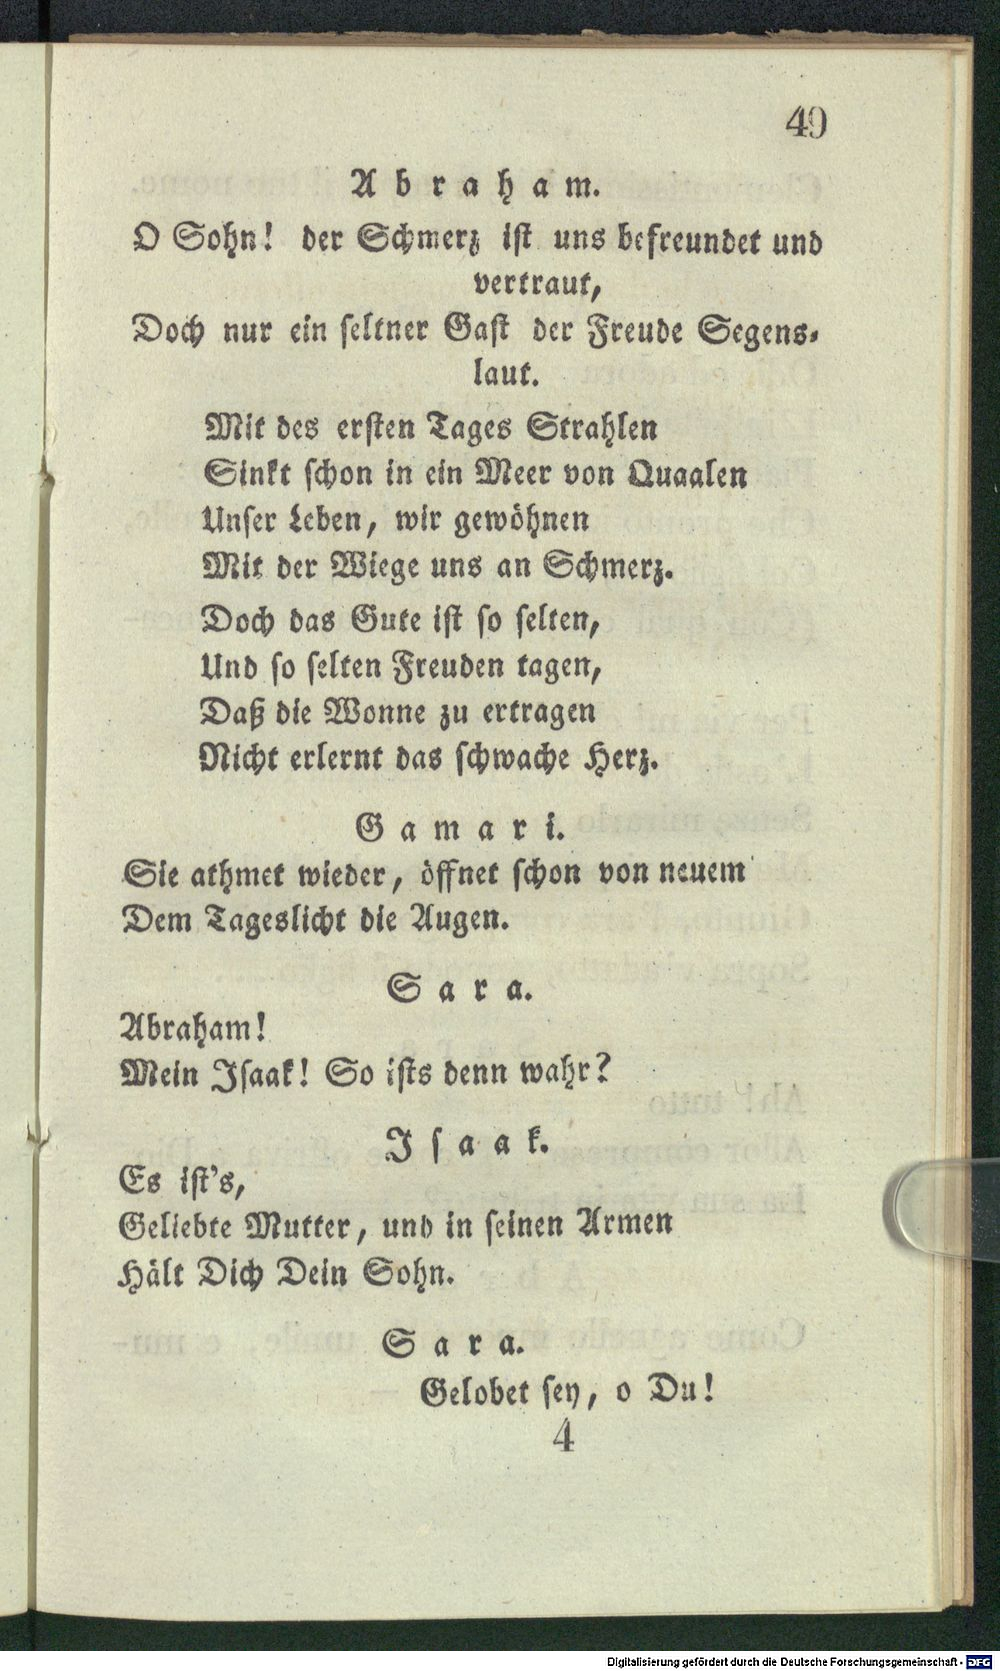 49
Abraham.
O Sohn! der Schmerz ist uns befreundet und
vertraut,
Doch nur ein seltner Gast der Freude Segens-
laut.
Mit des ersten Tages Strahlen
Sinkt schon in ein Meer von Quaalen
Unser Leben, wir gewöhnen
Mit der Wiege uns an Schmerz.
Doch das Gute ist so selten,
Und so selten Freuden tagen,
Daß die Wonne zu ertragen
Nicht erlernt das schwache Herz.
Gamari.
Sie athmet wieder, öffnet schon von neuem
Dem Tageslicht die Augen.
Sara.
Abraham!
Mein Isaak! So ists denn wahr?
Isaak.
Es ist's,
Geliebte Mutter, und in seinen Armen
Hält Dich Dein Sohn.
Sara.
Gelobet sey, o Du!
4
Digitalisierung gefördert durch die Deutsche Forschungsgemeinschaft - DFG